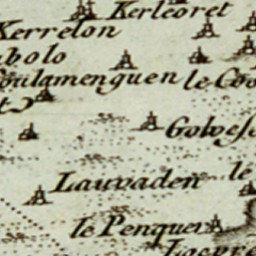 Kerleoret
Kerrelon
abolo
oulamenguen
le Coo
Golvese
Lauvaden
le
le Penquer
Locpre